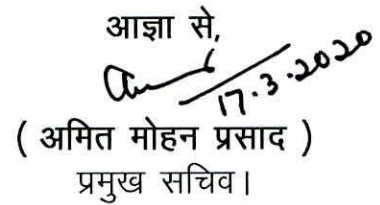 आज्ञा से,
17.3.2020
( अमित मोहन प्रसाद )
प्रमुख सचिव।